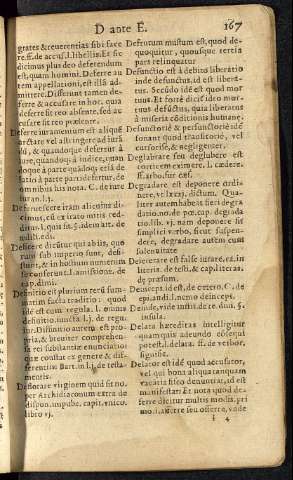 D ante E. 167
grates & reuerentias sibi face
re. ff. de accus. l. libellis. Et sic
dicimus plus deo deferendum
est, quam homini. Deferre au
tem appellationi, est illā ad-
mittere. Differunt tamen de-
ferre & accusare in hoc. quia
deferre sit reo absente, sed ac-
cusare sit reo præsente.
Deferre iuramentum est aliquē
arctare vel astringere ad iurā
dū, & quandoque defertur à
iure, quandoq; à iudice, quan
doque à parte quādoq; etiā de
ratio à parte
omnibus his nota. C. de iure
iuran. l.
iram alicuius di-
cimus,
mus. l. quis sit. §. idem ait. de
edi.
Deficere dicūtur qui ab iis, quo
rum sub imperio sunt, desi-
stunt, & in hostium numerum
se conferunt. l. amissione. de
cap. dimi.
Definitio est plurium rerū sum
matim facta traditio: quod
idē est cum regula. l. omnis
definitio iuncta l. j. de regu.
iur. Distinctio autem est pro-
pria, & breuiter comprehen-
sa rei substantiæ enunciatio
que constat ex genere & dif-
ferentiis Bart. in l. j. de testa-
mentis.
Deflorare virginem quid sit no.
per Archidiaconum extra de
dispon. impube. capit. vnico.
libro vj.
Defunctum mustum est, quod de-
quoquitur, quousque tertia
pars relinquatur
Defunctio est à debito liberatio
inde defunctus, id est libera-
tus. Secūdo idē est quod mor
tuus. Et forrē dicis ideo mor-
tuus defūctus, quia liberatus
à miseria cōditionis humanę.
Defunctoriè & perfunctoriè idē
sonant quod transitoriè, vel
cursoriè, & negligenter.
Deglabrare seu deglubere est
corticem eximere. l. cædere.
ff. arbo. fur cæs.
Degradare est deponere ordi-
nare, vt lxxxj. dictum. Qua-
liter autem habeat fieri degra
datio. no. de pœ. cap. degrada
tio. lib. vj. nam deponere si-
mplici verbo, sicut suspen-
dere, degradare autem cum
solenitate
Deierare est false iurare. ex. in
literis. de testi, & cap. literas,
de præsum.
Deinceps. id est, de cetero. C. de
epi. and. l. nemo deinceps.
Deinde, vide instit. de re. diu. §.
insula.
Delata hæreditas intelligitur
quam quis adeundo cōsequi
potest. l. delata. ff. de verbor.
signific.
Delator est idē quod accusator,
vel qui bona aliqua tanquam
vacatia fisco denuntiat, id est
manifestat. Et nota quod de-
ferre dicitur multis modis. pri
mo. l. alicere seu offerre, vnde
l 4